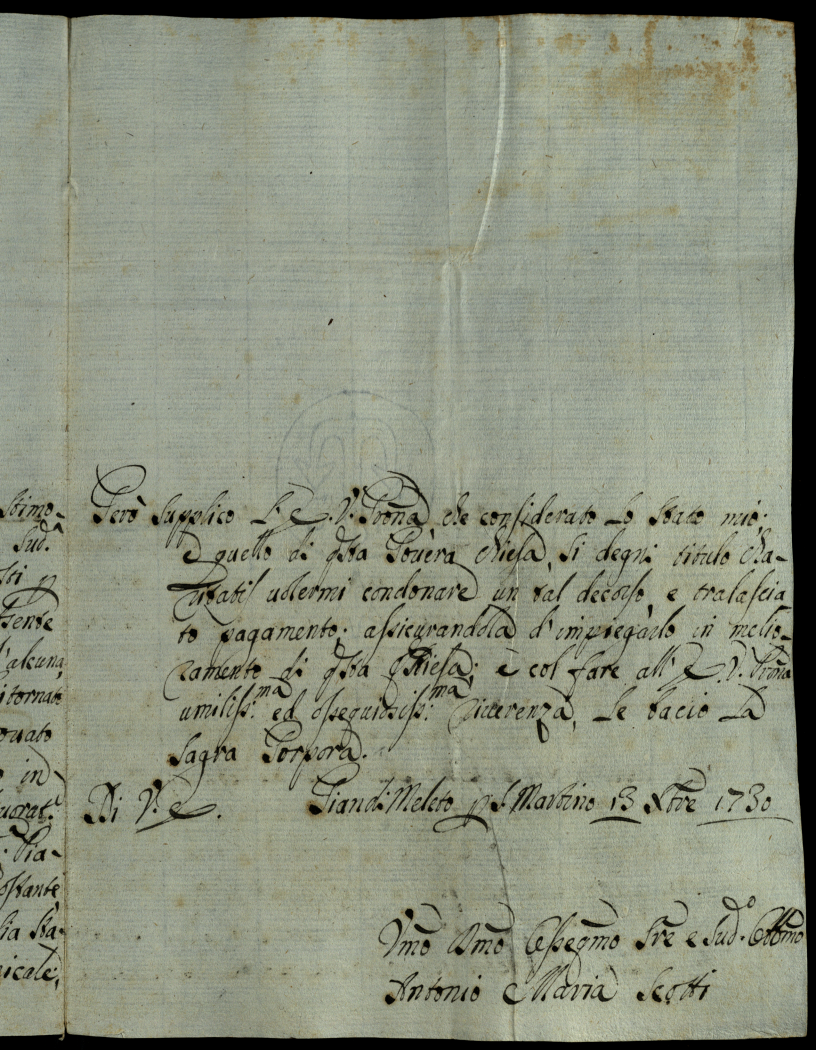 stimo-
Sud.ª
sti p
sente
d'alcuna
ritornato
ouato
in
Pia-
ostante
lia sta-
nicale,
Però supplico L'E. V. Prona che considerato Lo stato mio,
e quello di qsta Povera Chiesa, si degni titulo cha-
ritatis uolermi condonare un tal decorso, e tralascia
to pagamento; assicurandola d'impiegarlo in melio-
ramento di qsta Chiesa; e col fare all' E. V. Prona
umiliss:ma ed ossequiosiss:ma riuerenza, Le bacio La
Sagra Porpora.
Di V. E. Pian di Meleto p S. Martino 13 Xbre 1730
Vmo Dmo Ossegmo Sre e Sud.º Obbmo
Antonio Maria Scotti